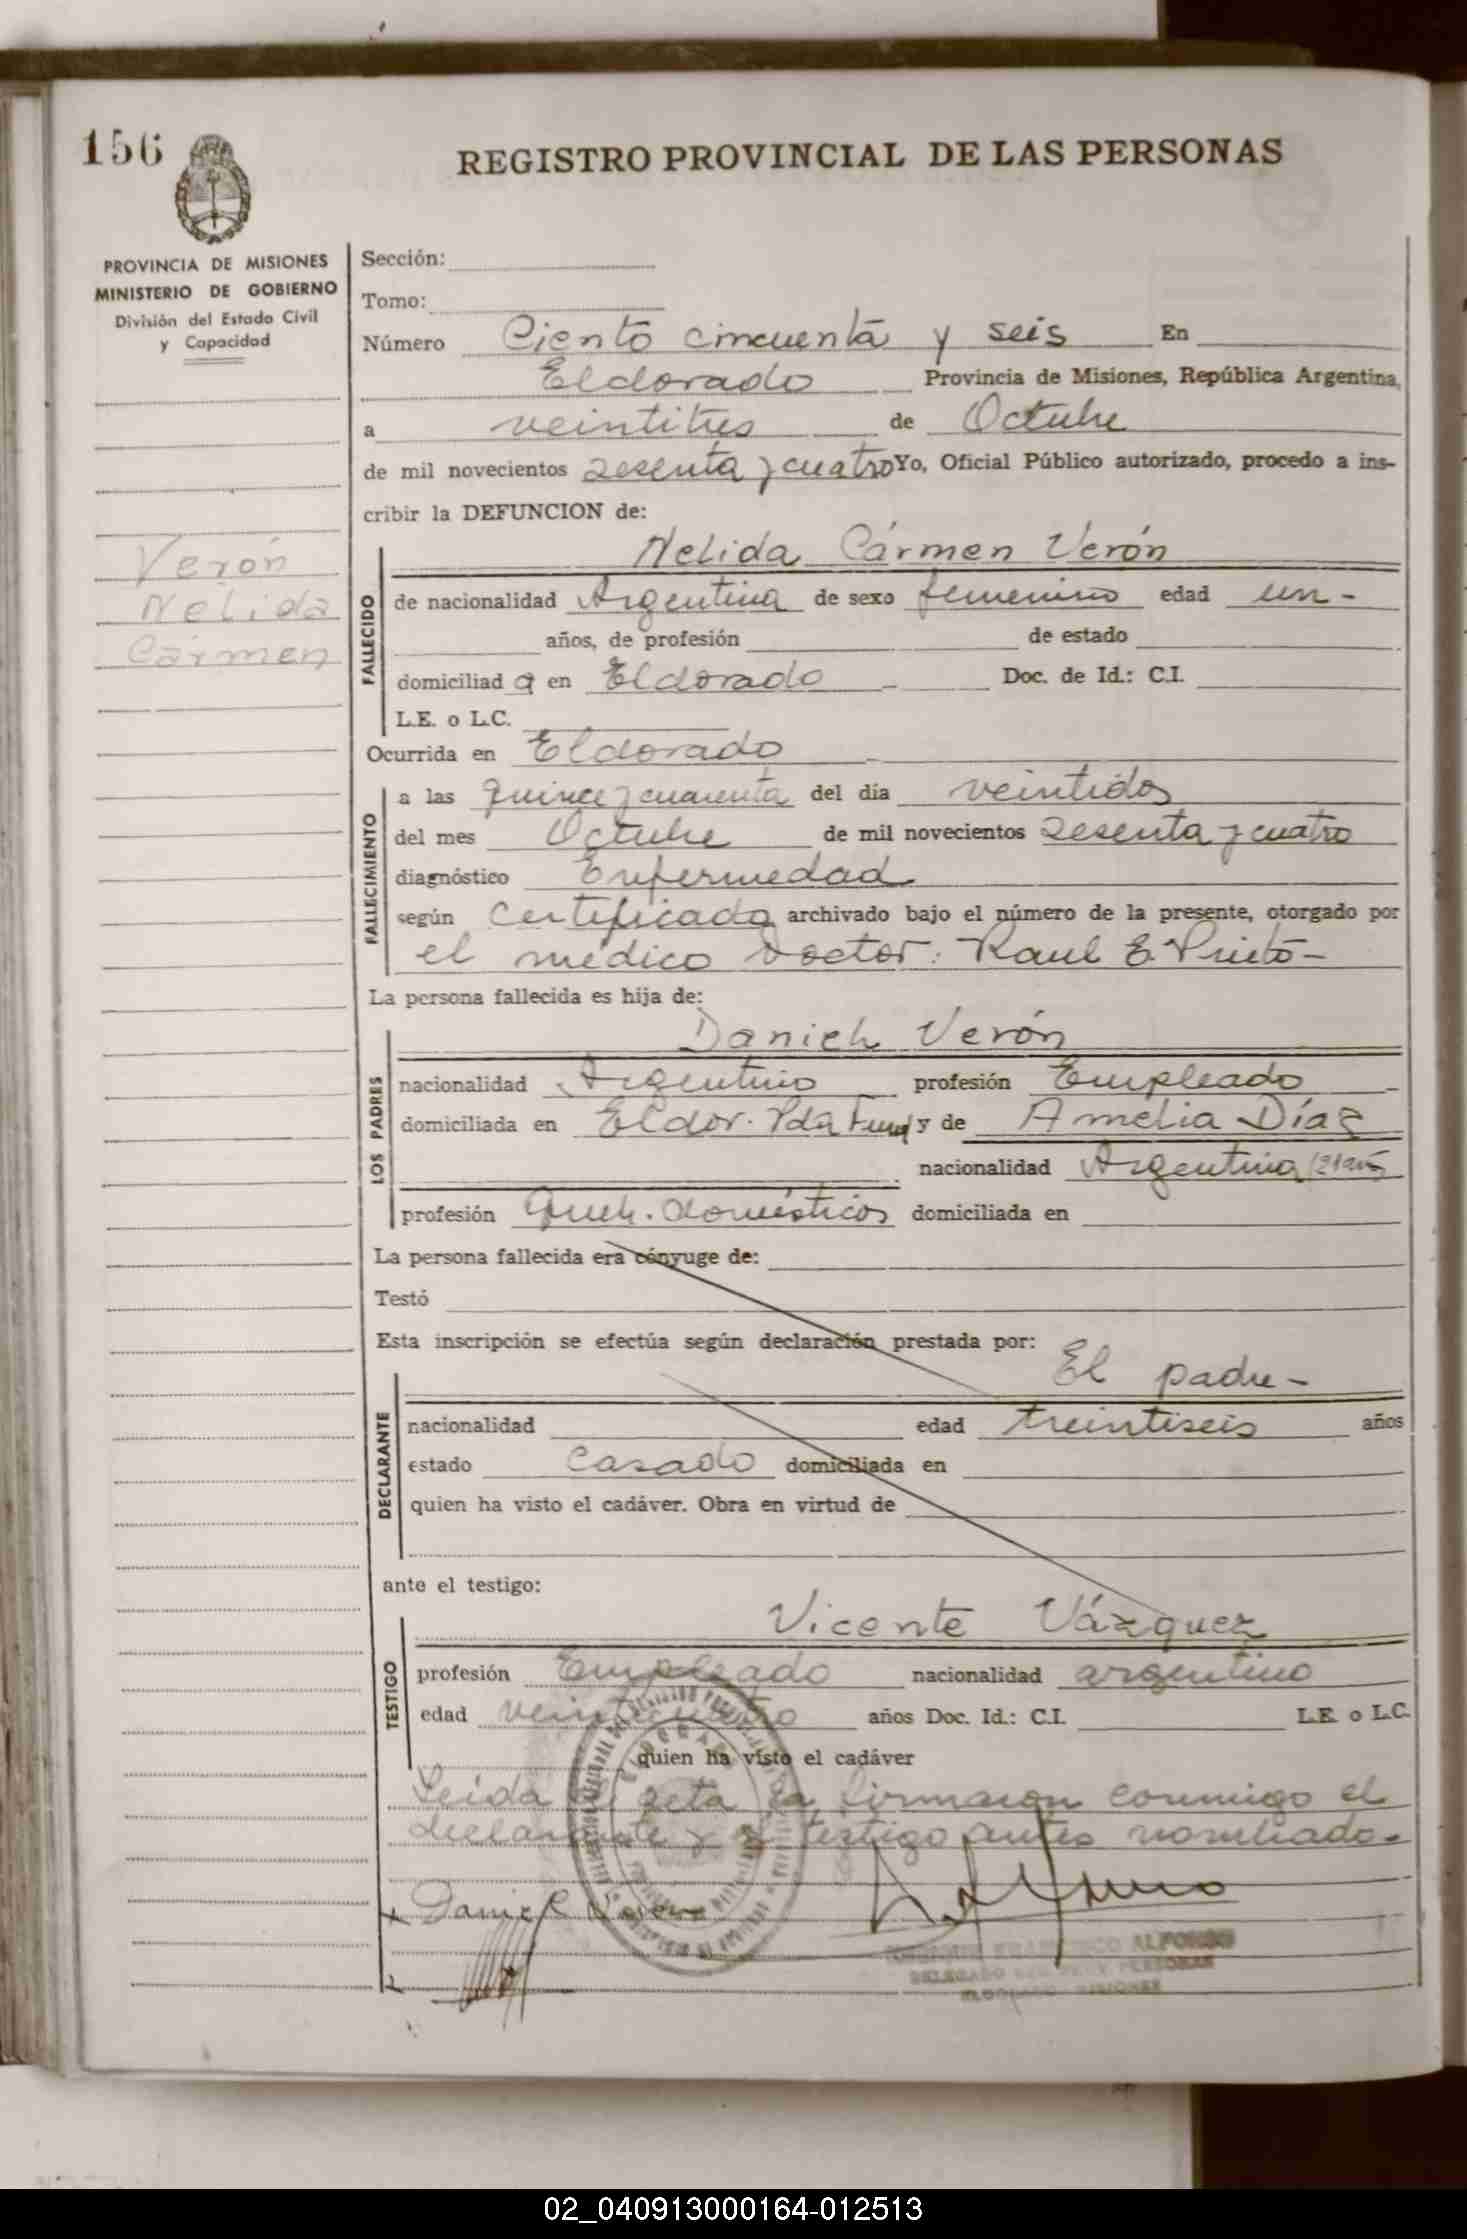 156
REGISTRO PROVINCIAL DE LAS PERSONAS
PROVINCIA DE MISIONES
MINISTERIO DE GOBIERNO
División del Estado Civil
y Capacidad
Verón
Nélida
Cármen
Sección:
Tomo:
Número Ciento cincuenta y seis En
Eldorado Provincia de Misiones, República Argentina,
a veintitres de Octubre
de mil novecientos sesenta y cuatro Yo, Oficial Público autorizado, procedo a ins-
cribir la DEFUNCION de:
Nelida Cármen Verón
FALLECIDO
de nacionalidad Argentina de sexo femenino edad un -
años, de profesión de estado
domiciliad a en Eldorado Doc. de Id.: C.I.
L.E. o L.C.
Ocurrida en Eldorado
FALLECIMIENTO
a las quince y cuarenta del día veintidos
del mes Octubre de mil novecientos sesenta y cuatro
diagnóstico Enfermedad
según Certificado archivado bajo el número de la presente, otorgado por
el médico Doctor: Raul E. Prieto -
La persona fallecida es hija de:
Daniel Verón
LOS PADRES
nacionalidad Argentino profesión Empleado
domiciliada en Eldor. y de Amelia Díaz
nacionalidad Argentina
profesión Queh. domésticos domiciliada en
La persona fallecida era cónyuge de:
Testó
Esta inscripción se efectúa según declaración prestada por:
El padre -
DECLARANTE
nacionalidad edad treintiseis años
estado casado domiciliada en
quien ha visto el cadáver. Obra en virtud de
ante el testigo:
Vicente Vázquez
TESTIGO
profesión Empleado nacionalidad argentino
edad veinticuatro años Doc. Id.: C.I. L.E. o L.C.
quien ha visto el cadáver
Leida el acta la firmaron conmigo el
declarante y el testigo antes nombrado.
Daniel
FRANCISCO ALFONSO
DELEGADO PERSONAS
02_040913000164-012513